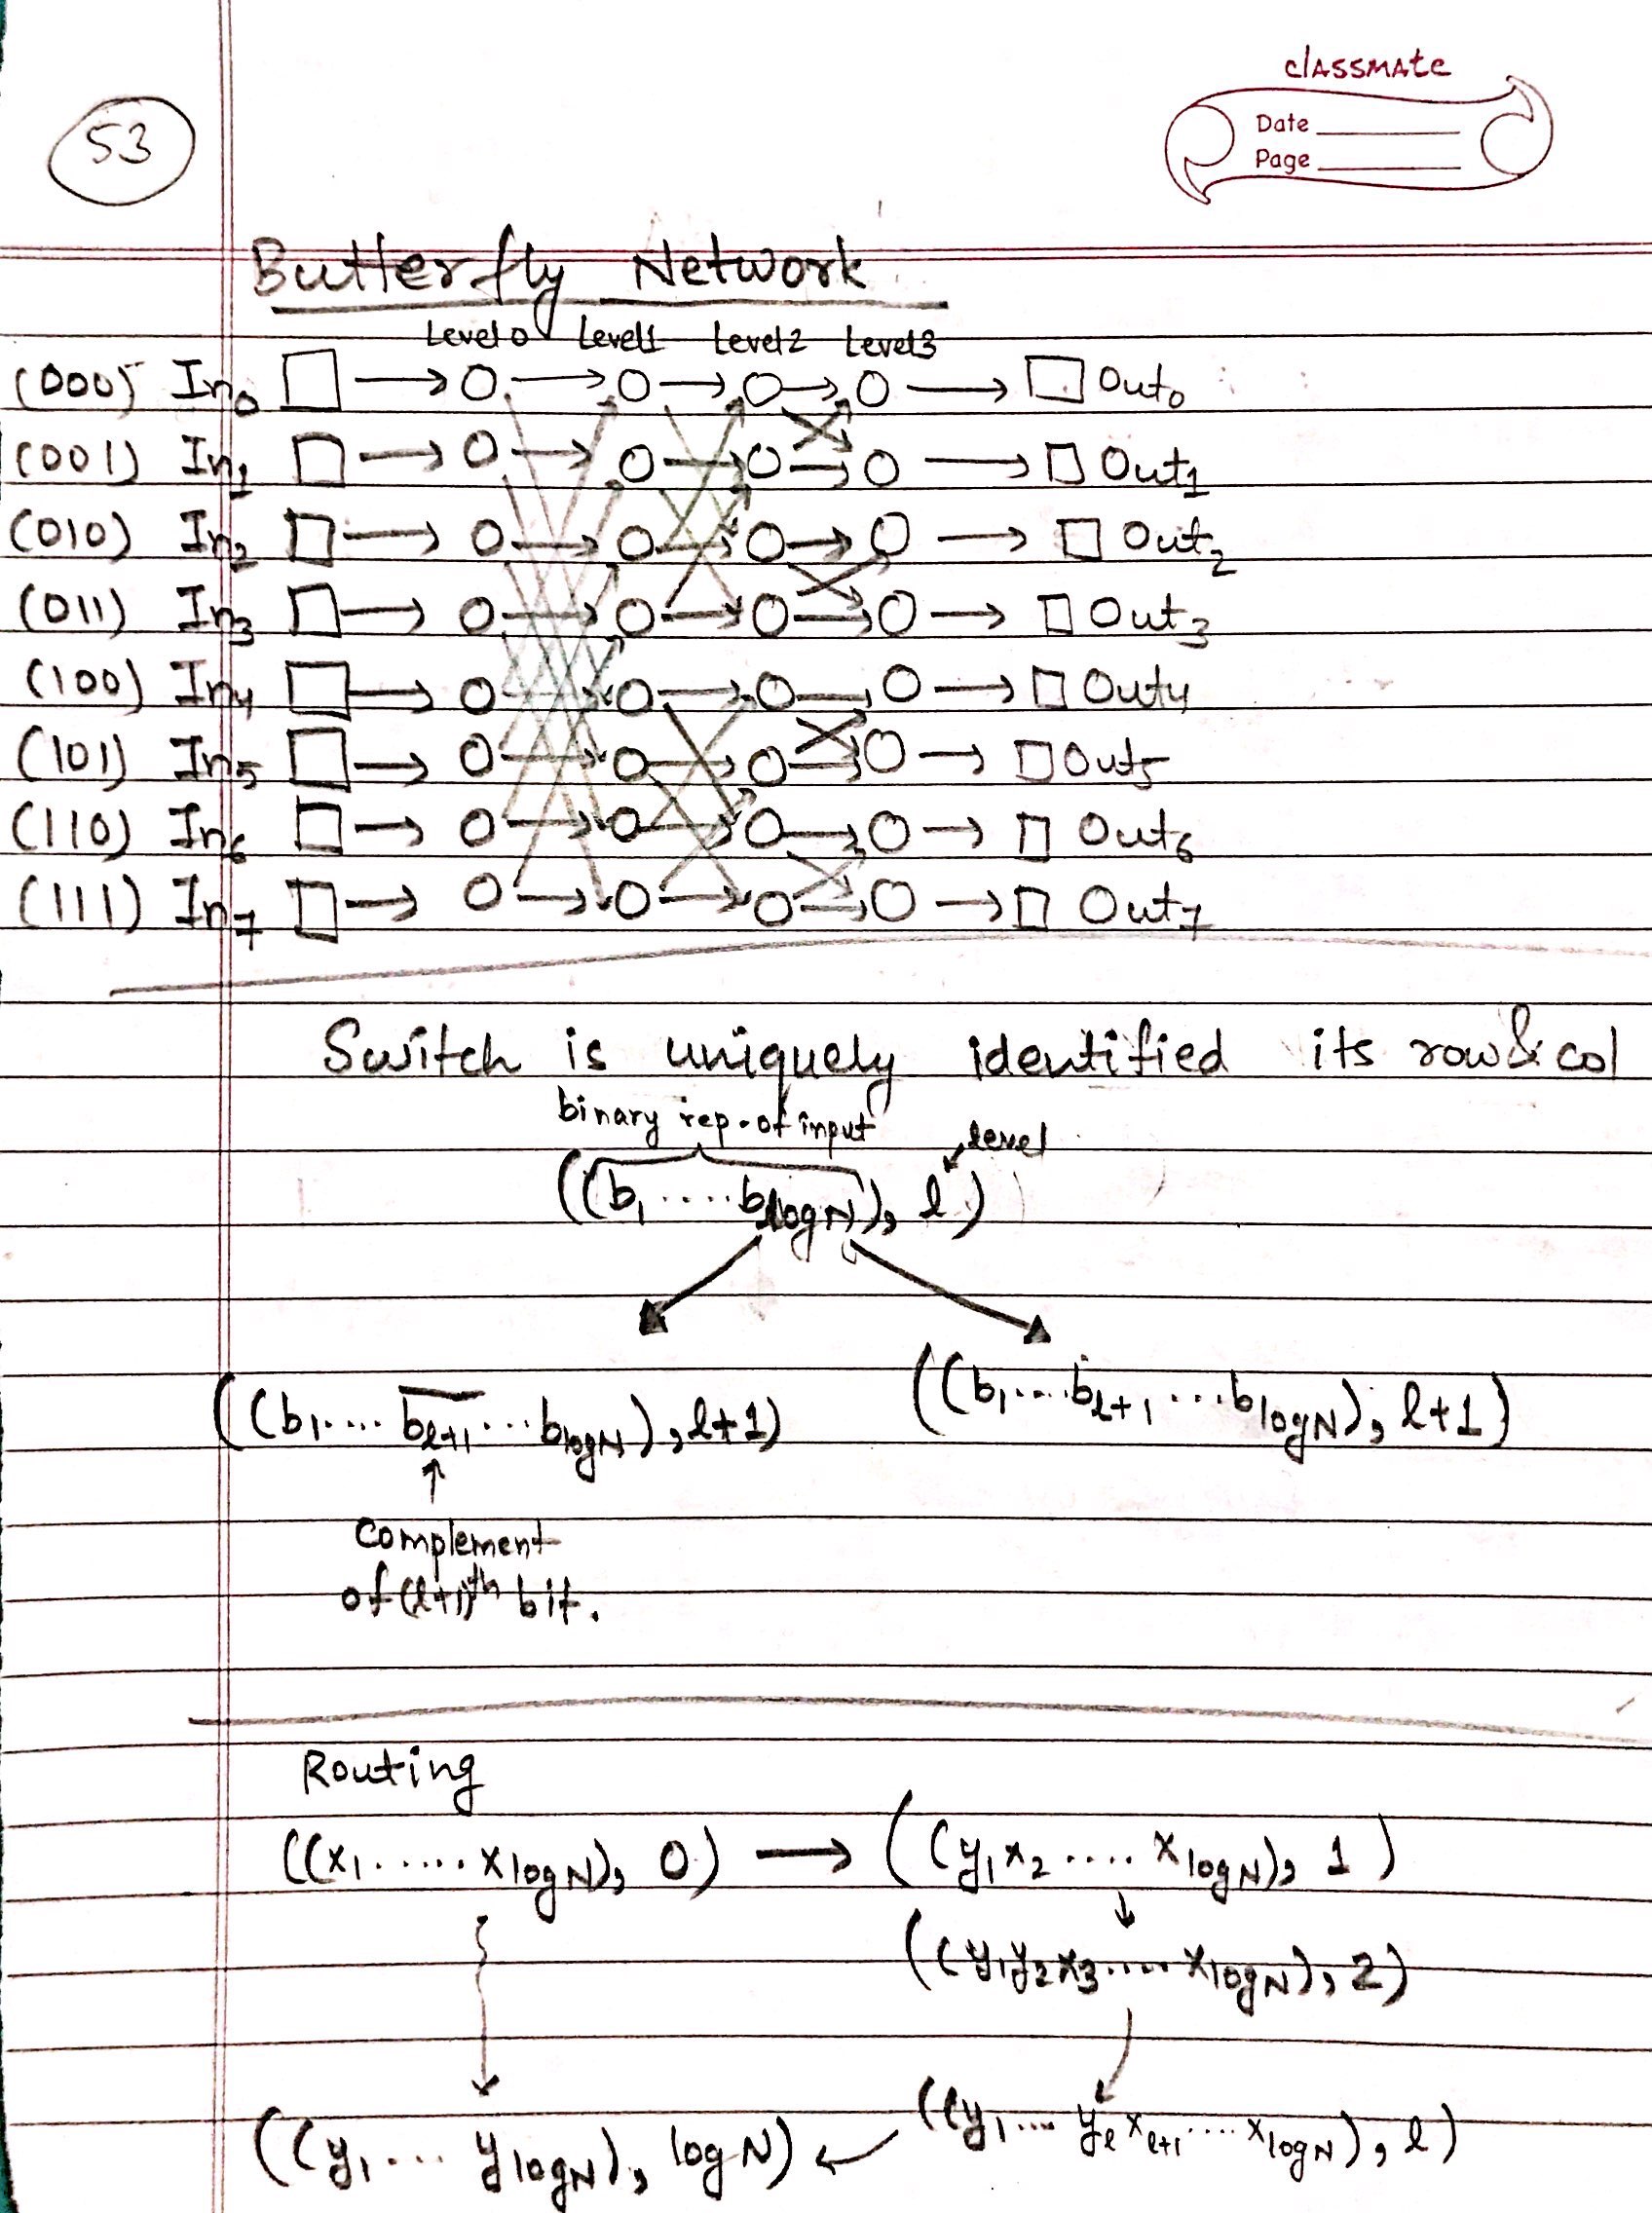 classmate
Date
Page
53
Butterfly Network
Level 0 Level1 Level2 Level3
(000) In0 Out0
(001) In1 Out1
(010) In2 Out2
(011) In3 Out3
(100) In4 Out4
(101) In5 Out5
(110) In6 Out6
(111) In7 Out7
Switch is uniquely identified its row & col
binary rep. of input
level
((b1 .... blogN), l)
((b1.... b̅l+1 ... blogN), l+1) ((b1....bl+1 ...blogN), l+1)
Complement
of (l+1)th bit.
Routing
((x1 ...... xlogN), 0) → ((y1x2 .... xlogN), 1)
((y1y2x3..... xlogN), 2)
((y1.... ylogN), logN) ← ((y1.... yl xl+1.... xlogN), l)